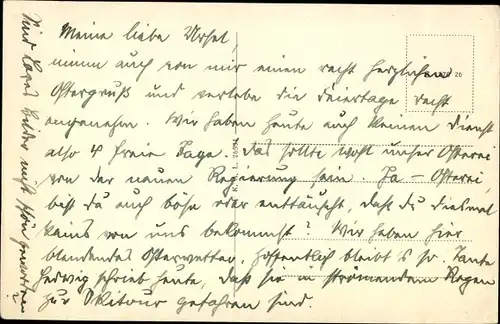 Meine liebe Ursel,
nimm auch von mir einen recht herzlichen
Ostergruß und verlebe die Feiertage recht
angenehm. Wir haben heute auch keinen Dienst
also 4 freie Tage. Das sollte wohl unser Osterei
von der neuen Regierung sein. Ja – Osterei,
bist du auch böse oder enttäuscht, daß du diesmal
keins von uns bekommst? Wir haben hier
blendendes Osterwetter. Hoffentlich bleibt es so. Tante
Hedwig schrieb heute, daß sie in strömendem Regen
zur Skitour gefahren sind.
Sind leider nicht schön geworden